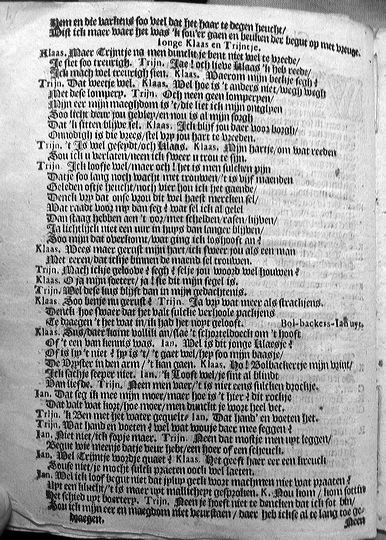 Hem en die varkens soo veel dat het haer te degen heucht/
Wist ick maer waer het was 'k sou'er gaen en deuken der begut op met vreugt.
Jonge Klaas en Trijntje.
Klaas. Maer Trijntje na men dunckt je bent niet wel te vreede/
Je siet soo treurigh. Trijn. Jae! och lieve Klaas 'k heb reede/
Ick mach wel treurigh sien. Klaas. Waerom mijn beckje segh?
Trijn. Dat weetje wel. Klaas. Wel hoe is 't anders niet/ wegh wegh
Met dese lompery. Trijn. Och neen geen lomperyen/
Mijn eer mijn maeghdom is 't/ die liet ick mijn ontglyen
Soo licht deur jou gevley/ en nou is al mijn sorgh
Dat 'k sitten blijve sel. Klaas. Ick blijf jou daer voor borgh/
Onnodigh is die vrees/ stel vry jou hart te vreeden
Trijn. 't Is wel geseydt/ och Klaas. Klaas. Mijn hartje, om wat reeden
Sou ick u verlaten/ neen ick sweer u trou te sijn.
Trijn. Ick loofje wel/ maer och! het is men sulcken pijn
Datje soo lang noch wacht met trouwen/ 't is vijf maenden
Geleden ofstje heucht/ noch vier hou ick het gaende/
Denck vry dat onse vrou dit wel haest mercken sel/
Wat raadt voor my dan seg? wat sel ick al gelel
Dan staag hebben aen 't oor/ met schelden/ rasen/ kijven/
Ja lichtlijch niet een uur in huys dan langer blijven/
Soo mijn dat overkomt/ wat ging ick loshooft an?
Klaas. Wees maer gerust mijn hart/ ick sweer jou als een man
Met eeren/ dat ickje binnen de maend sel trouwen.
Trijn. Mach ickje geloove? segh? selje jou woord wel houwen?
Klaas. O ja mijn soetert/ ja! sie dit mijn segel is.
Trijn. Wel dese kus blijft dan in mijn gedachtenis.
Klaas. Soo benje nu gerust? Trijn. Ja vry wat meer als strackjens.
Denck hoe swaer dat het valt sulcke verhoole packjens
Te draegen 't het wat in/ ick had het noyt gelooft. Bol-backers-Jan uyt.
Klaas. Sus/ daer komt volck an/ slae 't schorteldoeck om 't hooft
Of 't een van kennis was. Jan. Wel is dit jonge Klaesje?
Of is hy 't niet? hy is 't/ 't gaet wel/ hey soo mijn baasje/
De Vryster in den arm/ 't kan gaen. Klaas. Ho! Bolbackertje mijn vrint/
Ick sachje seeper niet. Jan. 'k Looft wel/ je sint al blindt
Van liefde. Trijn. Neen men vaer/ 't is niet eens sulcken drockje.
Jan. Dat seg ik mee mijn moer/ maer hoe is 't hier? dit rockje
Dat valt wat kort/ hoe moer/ men dunckt je voort heel vet.
Trijn. 'k Ben met het water gequelt. Jan. Wat hand' en voeten het.
Trijn. Wat hand en voeten? wel wat wouje daer mee seggen?
Jan. Niet niet/ ick sopje maer. Trijn. Neen dat mostje men uyt leggen/
Begut wie meenje datje veur hebt/ een hoer of een scheuck.
Jan. Wel Trijntje wordje quaet? Klaas. Het geeft haer eer een kreuck
Souse niet/ je mocht sulck praeten oock wel laeten.
Jan. Wel ick loof begut niet dat jylup geck voor machmen niet wat praaten?
Uyt een klucht/ 't is maer uyt mallicheyt gesproken. K. Nou hom/ hom sottin
Het schied uyt boertery. Trijn. Neen je hoeft niet te dencken dat ick sot bin/
Sou ick mijn eer en maegdom niet veurstaen/ daer heb ickse al te lang toe ge-
waegen. Neen